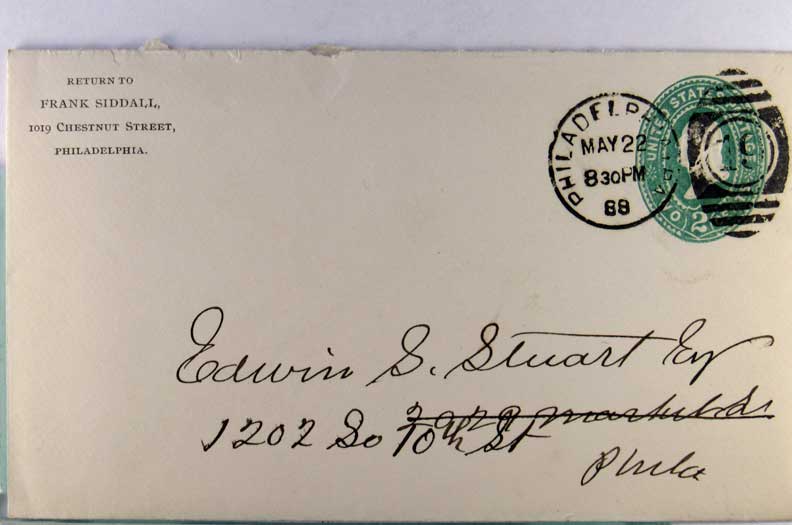 RETURN TO
FRANK SIDDALL,
1019 CHESTNUT STREET,
PHILADELPHIA.
PHILADELPHIA
MAY 22
830PM
88
UNITED STATES
2
Edwin S. Stuart Esq
Market St
1202 So 10th St
Phila